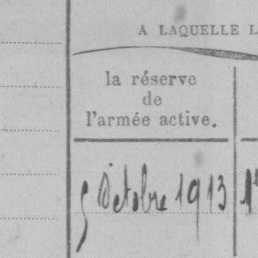 A LAQUELLE L
la réserve
de
l'armée active.
5 Octobre 1913 1er